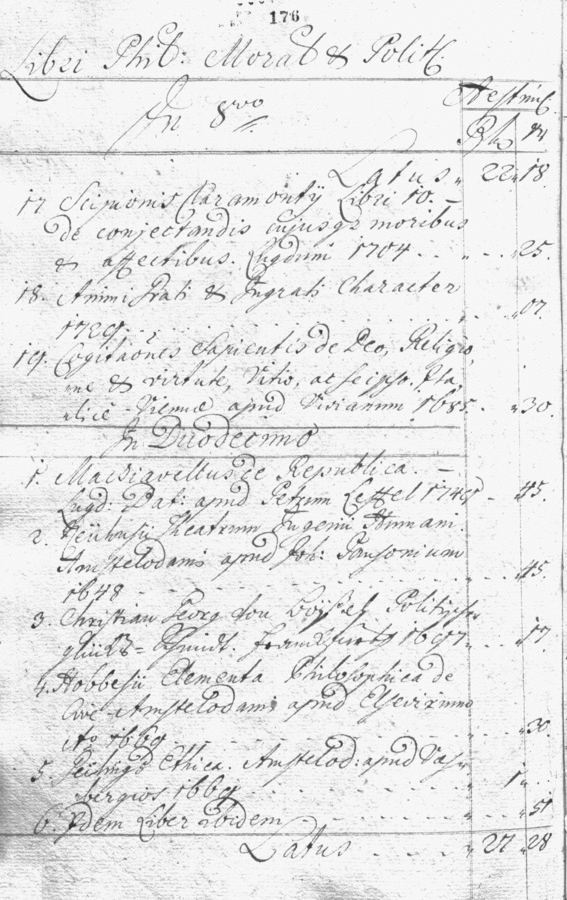 176
Libri Phil: Moral & Polit:
Aestim:
In 8vo
Rh xr
Latus 22 18
17 Scipionis Claramontij Libri 10. –
de conjectandis cujusqs moribus
& affectibus. Lugduni 1704 . . 25.
18. Animi Grati & Ingrati Character
1729. . . 07
19. Cogitaones Sapientis de Deo, Religio,
ne & virtute, Vitio, ac seipso. Ita,
lice Viennae apud Vivianum 1685. . 30.
In Duodecimo
1. Machiavellus de Republica. –
Lugd: Bat: apud Petrum 45.
2. Theatrum Ingenii Humani.
Amstelodami apud Joh: Jansonium
1648 . . 45.
3. Christian Georg von Politischer
glücks-Schmidt. Franckfurth 1697 . 17
4. Hobbesii Elementa Philosophica de
Cive Amstelodami apud Elsevirium
Ao 1669 . . 30.
5. Ethica. Amstelod: apud
1669 . . 1
6. Idem Liber Ibidem . 51
Latus . . . . 27 28